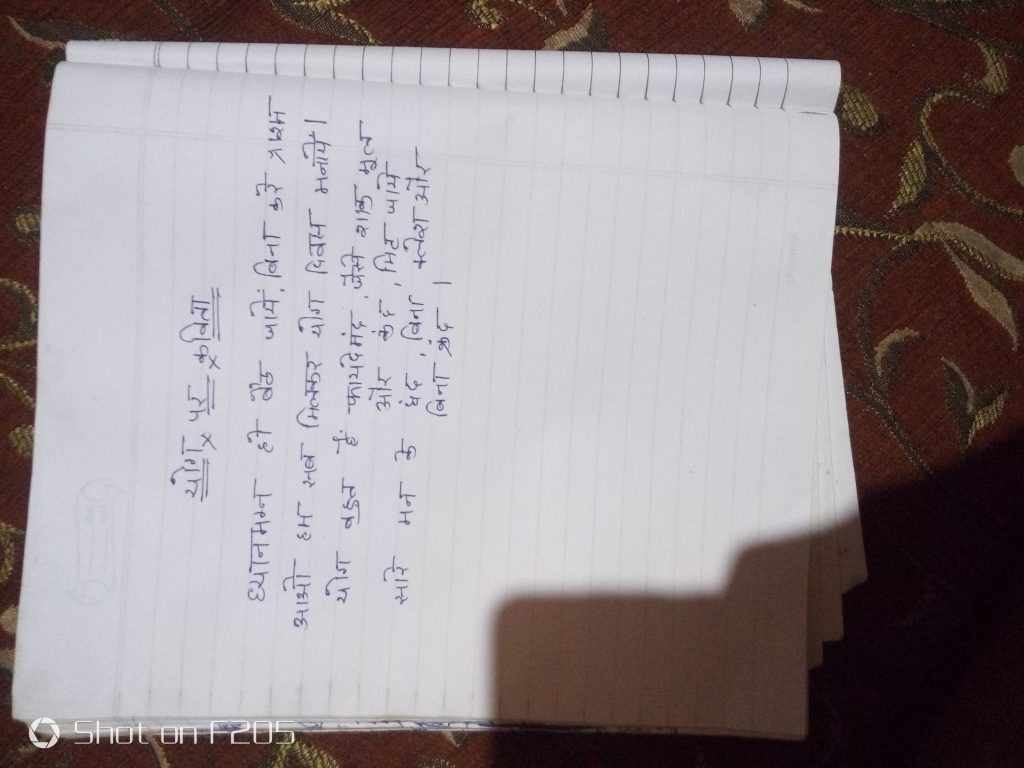 योग पर कविता
ध्यानमग्न हो बैठ जायें, बिना करे श्रम
आओ हम सब मिलकर योग दिवस मनायें।
योग बहुत है फायदेमंद, जैसे शाक मूल
और कंद, मिट जाये
सारे मन के द्वंद, बिना क्लेश और
बिना क्रंद।
Shot on F205